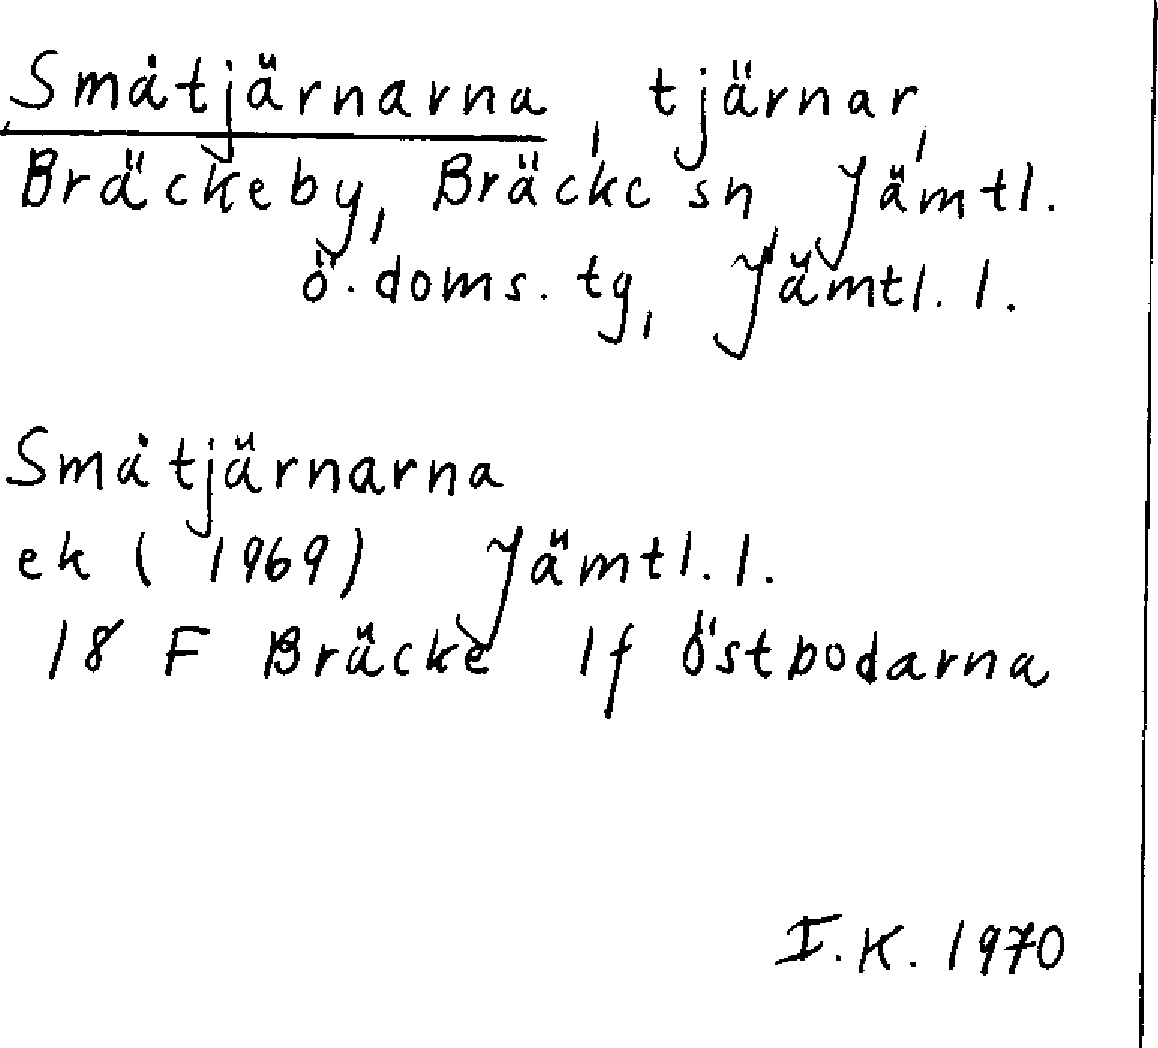 Småtjärnarna, tjärnar,
Bräckeby, Bräcke sn, Jämtl.
ö. doms. tg, Jämtl. l.
Småtjärnarna
ek (1969) Jämtl. l.
18 F Bräcke 1f Östbodarna
I.K. 1970